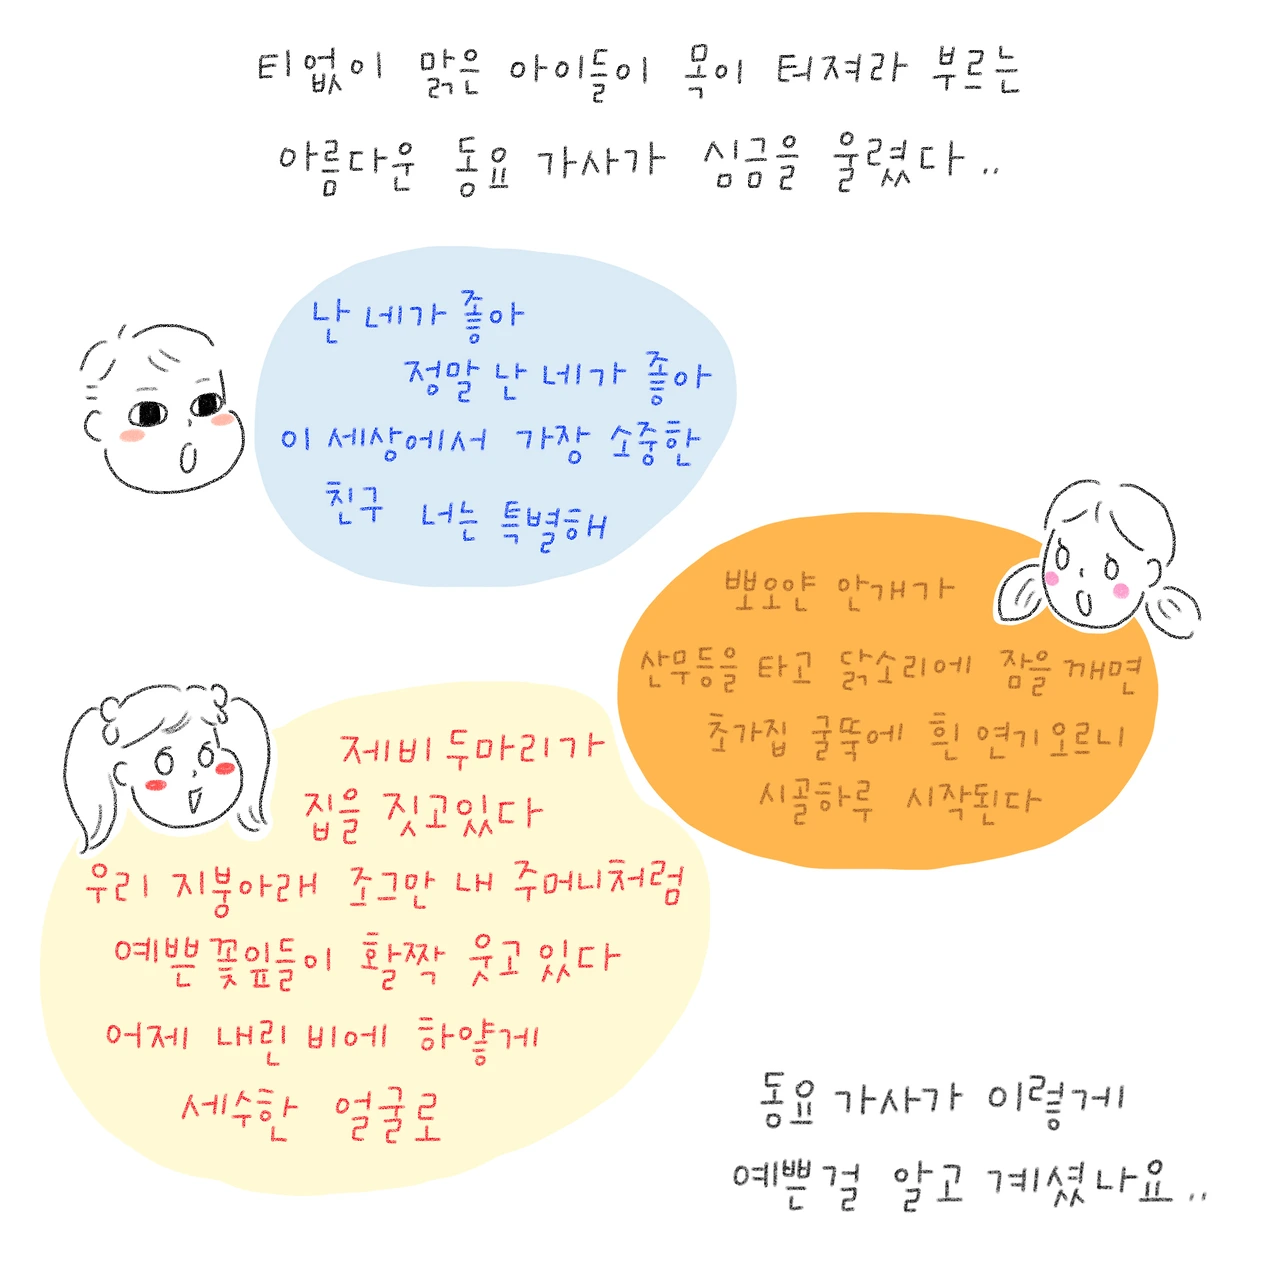 티없이 맑은 아이들이 목이 터져라 부르는
아름다운 동요 가사가 심금을 울렸다..
난 네가 좋아
정말 난 네가 좋아
이 세상에서 가장 소중한
친구 너는 특별해
뽀오얀 안개가
산무등을 타고 닭소리에 잠을 깨면
초가집 굴뚝에 흰 연기 오르니
시골하루 시작된다
제비 두마리가
집을 짓고있다
우리 지붕아래 조그만 내 주머니처럼
예쁜 꽃잎들이 활짝 웃고 있다
어제 내린 비에 하얗게
세수한 얼굴로
동요 가사가 이렇게
예쁜걸 알고 계셨나요..